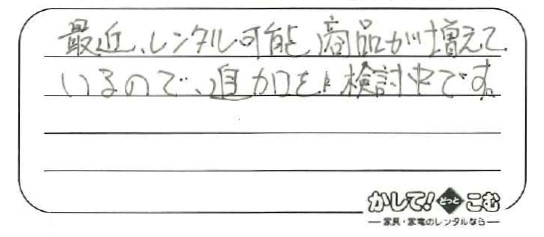 最近、レンタル可能商品が増えて
いるので、追加を検討中です。
かして!どっとこむ
家具・家電のレンタルなら